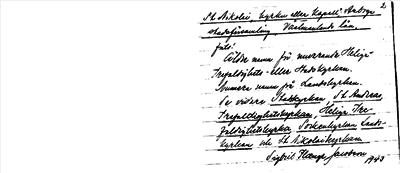 2
St. Nikolei, kyrka eller kapell Arboga
stadsförsamling Västmanlands län.
foto!
Äldre namn för nuvarande Helige
Trefaldighets- eller Stadskyrkan.
Numera namn på Landskyrkan.
Se vidare Stadskyrkan, St. Andreas,
Trefaldighetskyrkan, Helige Tre-
faldighetskyrka, Sockenkyrkan, Lands-
kyrkan och St. Nikolaikyrkan
Jacobson 1943